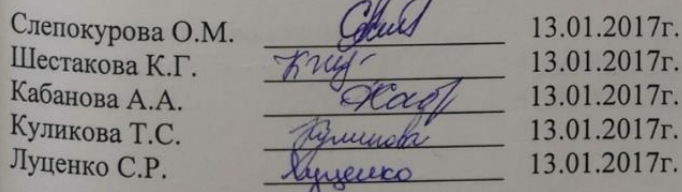 Слепокурова О.М. 13.01.2017г.
Шестакова К.Г. 13.01.2017г.
Кабанова А.А. Каб 13.01.2017г.
Куликова Т.С. Куликова 13.01.2017г.
Луценко С.Р. Луценко 13.01.2017г.